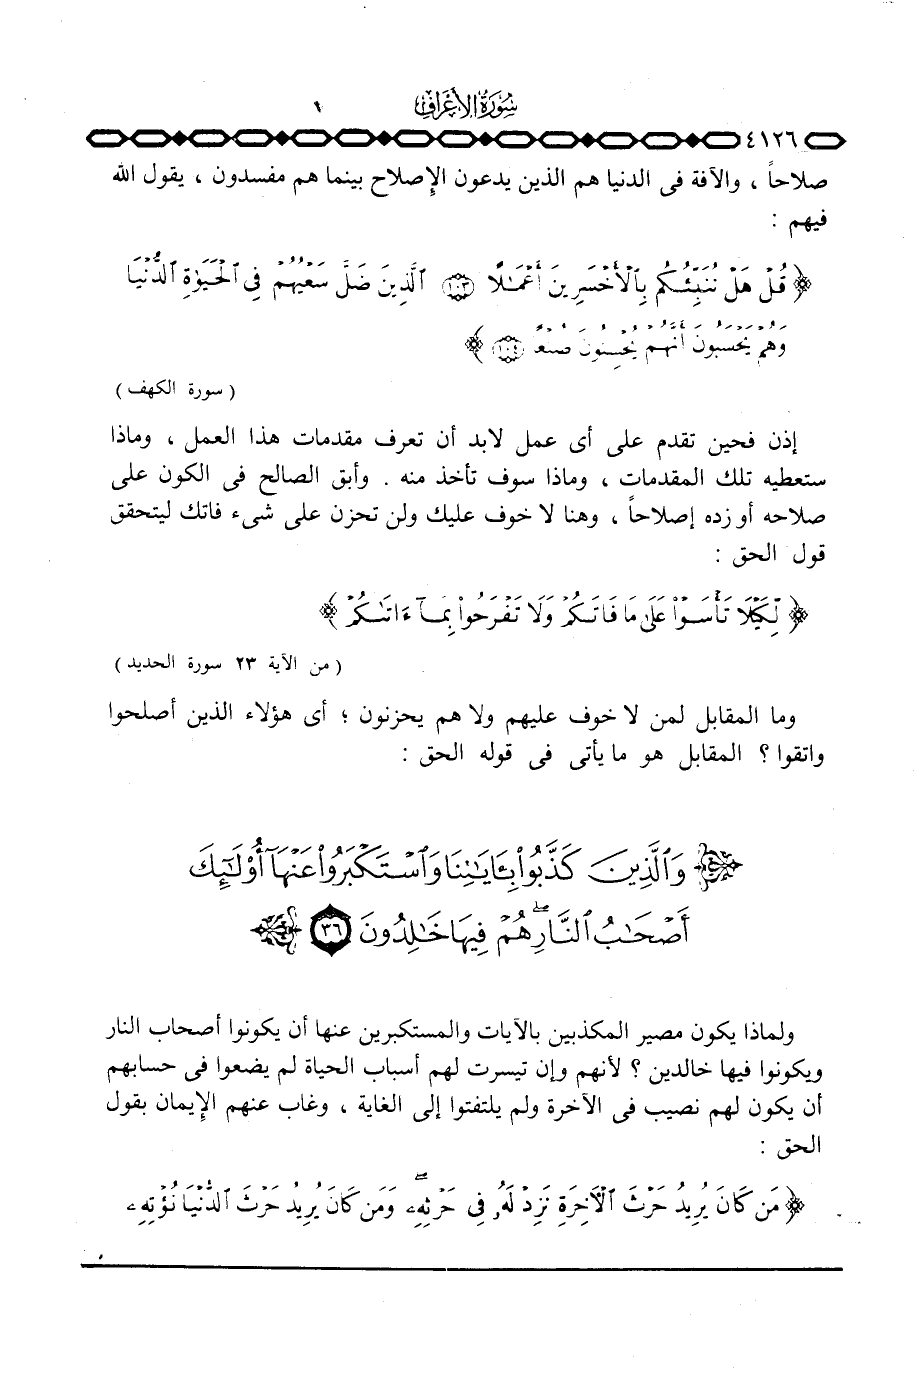 سُورَةُ الأَعْرَافِ
٤١٢٦
صلاحاً ، والآفة فى الدنيا هم الذين يدعون الإصلاح بينما هم مفسدون ، يقول الله
فيهم :
﴿ قُلْ هَلْ نُنَبِّئُكُم بِٱلْأَخْسَرِينَ أَعْمَٰلًا ﴿١٠٣﴾ ٱلَّذِينَ ضَلَّ سَعْيُهُمْ فِى ٱلْحَيَوٰةِ ٱلدُّنْيَا
وَهُمْ يَحْسَبُونَ أَنَّهُمْ يُحْسِنُونَ صُنْعًا ﴿١٠٤﴾ ﴾
( سورة الكهف )
إذن فحين تقدم على أى عمل لابد أن تعرف مقدمات هذا العمل ، وماذا
ستعطيه تلك المقدمات ، وماذا سوف تأخذ منه . وأبق الصالح فى الكون على
صلاحه أو زده إصلاحاً ، وهنا لا خوف عليك ولن تحزن على شىء فاتك ليتحقق
قول الحق :
﴿ لِّكَيْلَا تَأْسَوْا۟ عَلَىٰ مَا فَاتَكُمْ وَلَا تَفْرَحُوا۟ بِمَآ ءَاتَىٰكُمْ ﴾
( من الآية ٢٣ سورة الحديد )
وما المقابل لمن لا خوف عليهم ولا هم يحزنون ؛ أى هؤلاء الذين أصلحوا
واتقوا ؟ المقابل هو ما يأتى فى قوله الحق :
﴿ وَٱلَّذِينَ كَذَّبُوا۟ بِـَٔايَٰتِنَا وَٱسْتَكْبَرُوا۟ عَنْهَآ أُو۟لَٰٓئِكَ
أَصْحَٰبُ ٱلنَّارِ ۖ هُمْ فِيهَا خَٰلِدُونَ ﴿٣٦﴾ ﴾
ولماذا يكون مصير المكذبين بالآيات والمستكبرين عنها أن يكونوا أصحاب النار
ويكونوا فيها خالدين ؟ لأنهم وإن تيسرت لهم أسباب الحياة لم يضعوا فى حسابهم
أن يكون لهم نصيب فى الآخرة ولم يلتفتوا إلى الغاية ، وغاب عنهم الإيمان بقول
الحق :
﴿ مَن كَانَ يُرِيدُ حَرْثَ ٱلْءَاخِرَةِ نَزِدْ لَهُۥ فِى حَرْثِهِۦ ۖ وَمَن كَانَ يُرِيدُ حَرْثَ ٱلدُّنْيَا نُؤْتِهِۦ